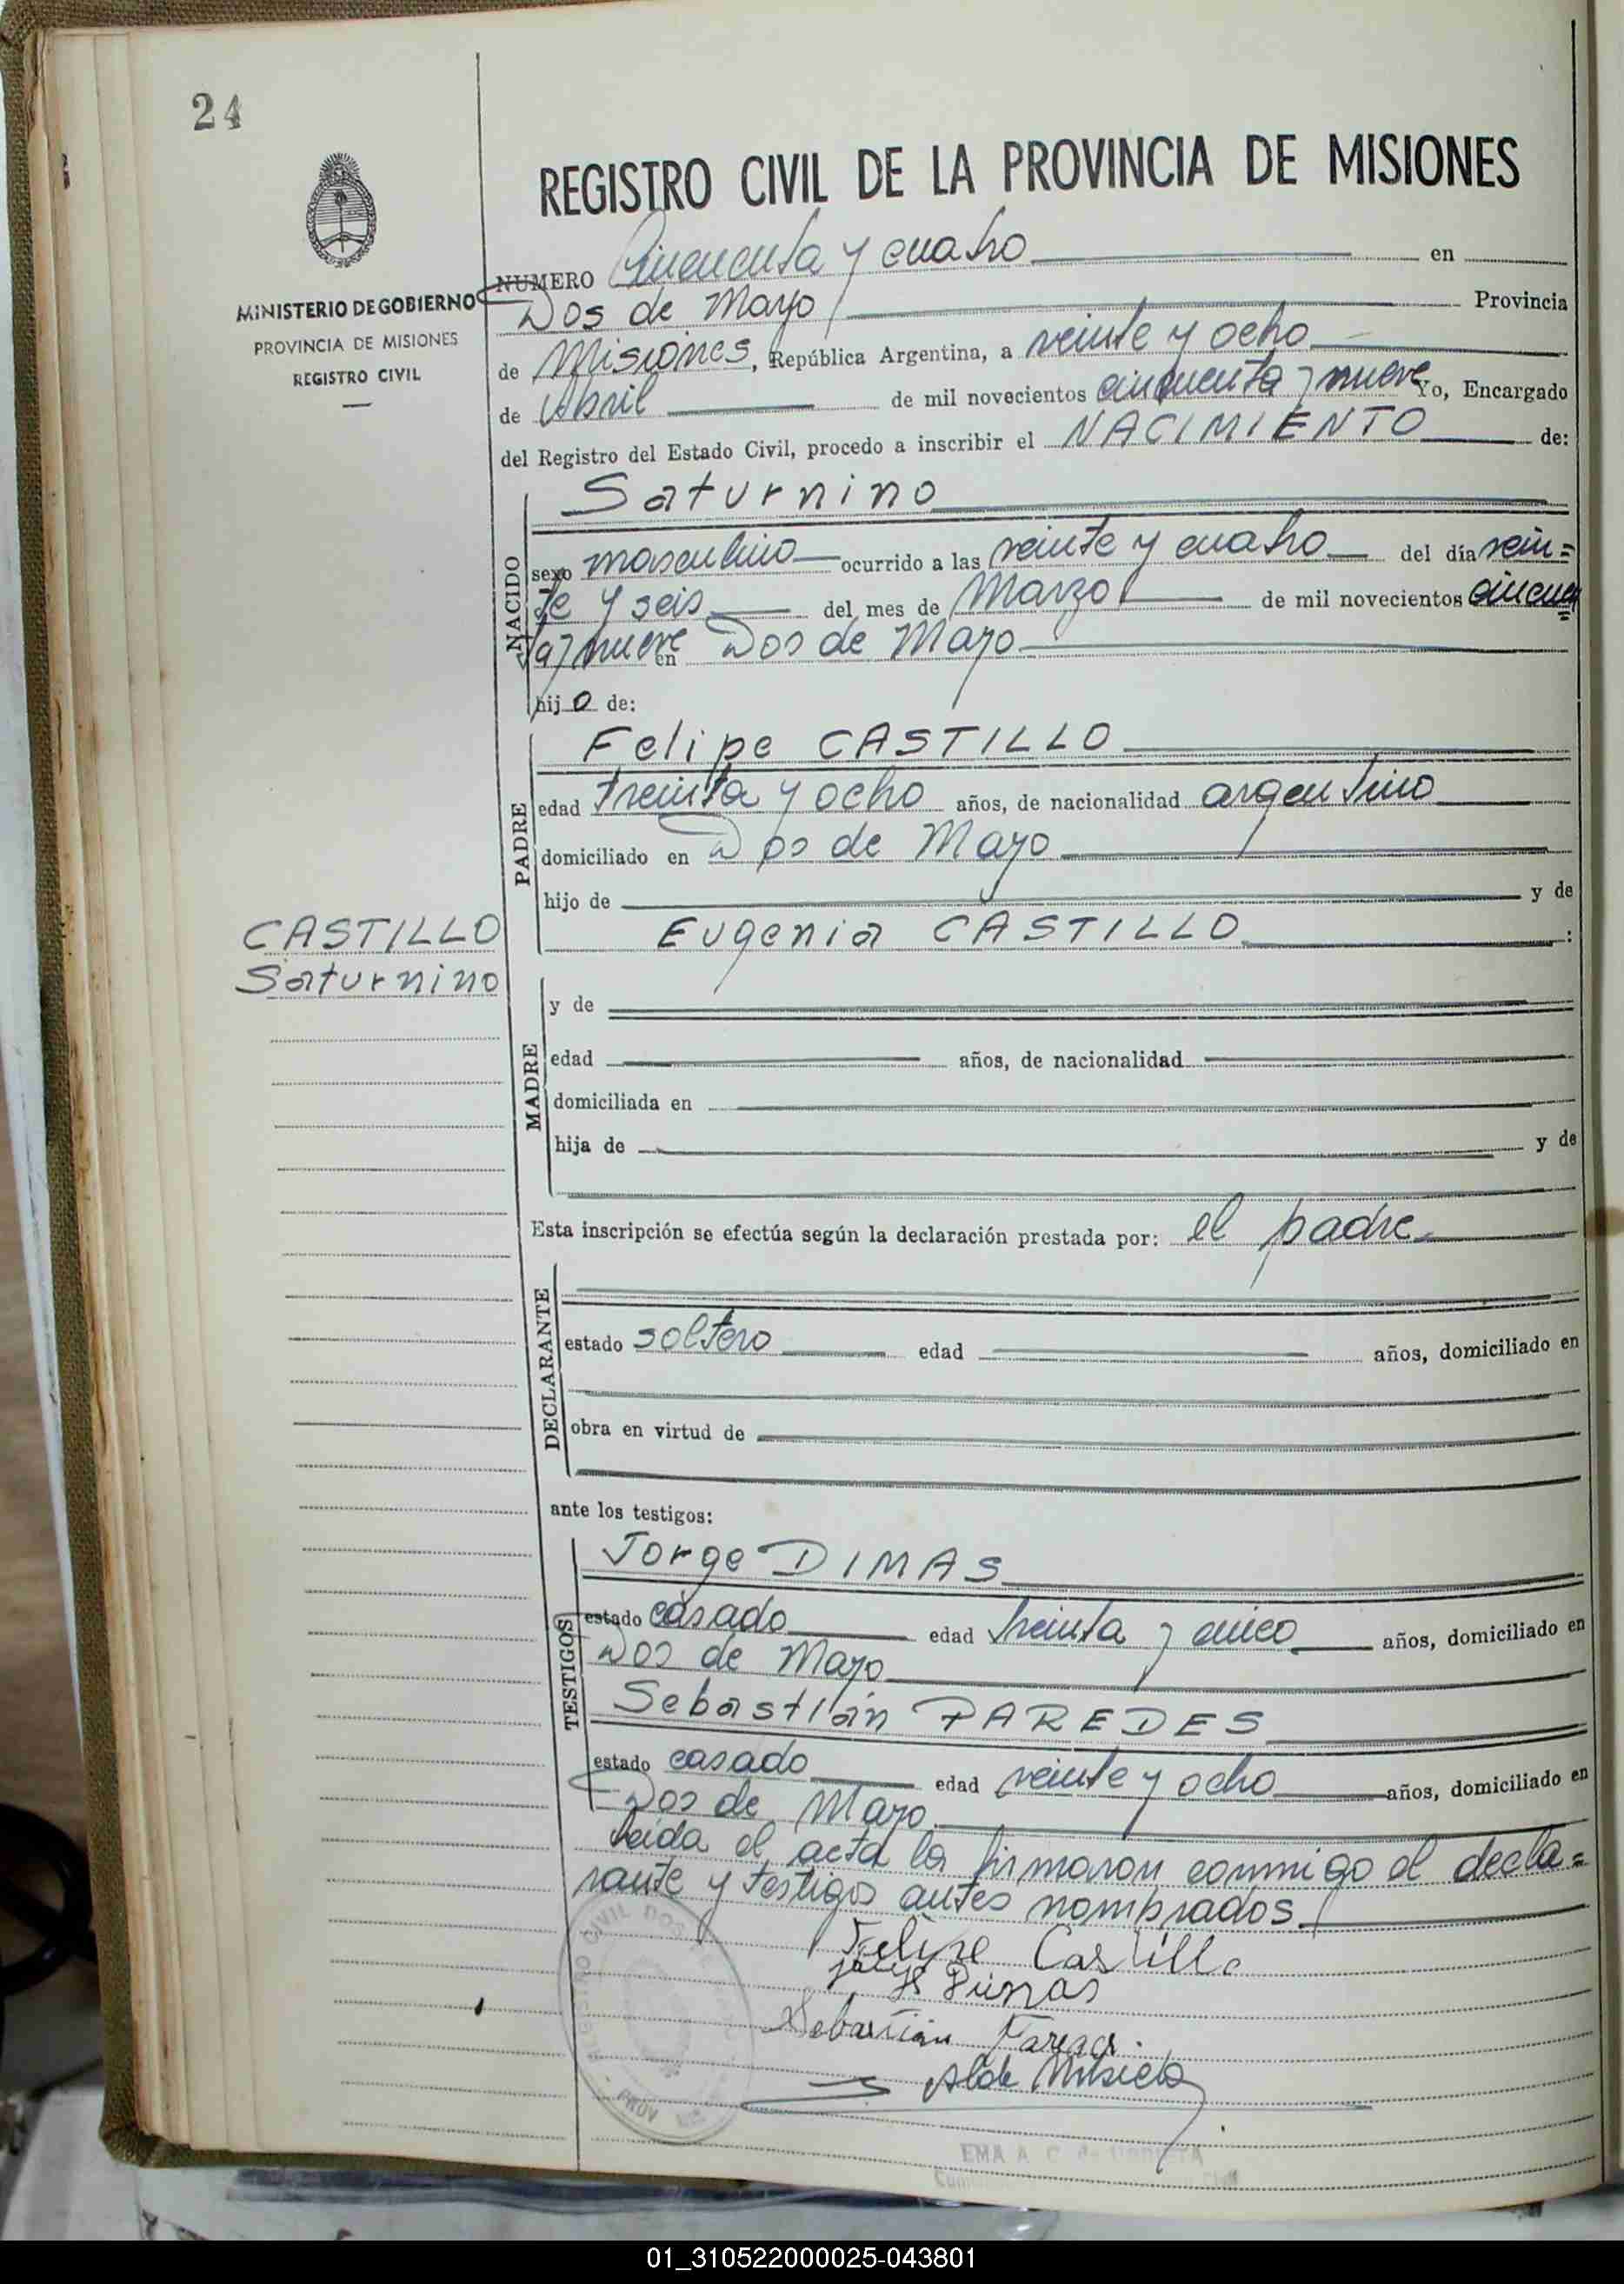 24
REGISTRO CIVIL DE LA PROVINCIA DE MISIONES
MINISTERIO DE GOBIERNO
PROVINCIA DE MISIONES
REGISTRO CIVIL
NUMERO Cincuenta y cuatro en
Dos de Mayo Provincia
de Misiones, República Argentina, a veinte y ocho
de Abril de mil novecientos cincuenta y nueve Yo, Encargado
del Registro del Estado Civil, procedo a inscribir el NACIMIENTO de:
NACIDO
Saturnino
sexo masculino ocurrido a las veinte y cuatro del día vein=
te y seis del mes de Marzo de mil novecientos cincuen=
ta y nueve en Dos de Mayo
hijo de:
PADRE
Felipe CASTILLO
edad treinta y ocho años, de nacionalidad argentino
domiciliado en Dos de Mayo
hijo de y de
Eugenia CASTILLO :
CASTILLO
Saturnino
MADRE
y de
edad años, de nacionalidad
domiciliada en
hija de y de
Esta inscripción se efectúa según la declaración prestada por: el padre
DECLARANTE
estado soltero edad años, domiciliado en
obra en virtud de
ante los testigos:
TESTIGOS
Jorge DIMAS
estado casado edad treinta y cinco años, domiciliado en
Dos de Mayo
Sebastián PAREDES
estado casado edad veinte y ocho años, domiciliado en
Dos de Mayo
Leida el acta la firmaron conmigo el decla=
rante y testigos antes nombrados.
Felipe Castillo
Sebastián
REGISTRO CIVIL DOS
PROV
EMA A. C. de
01_310522000025-043801